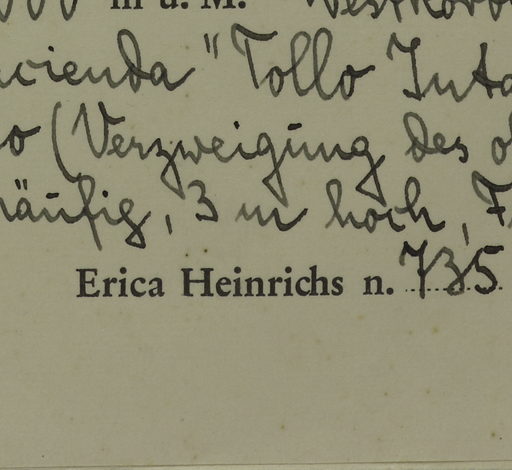 m ü. M. Westkordi
acienda" Tollo Inta
o (Verzweigung des o
häufig, 3 m hoch, F
Erica Heinrichs n. 735